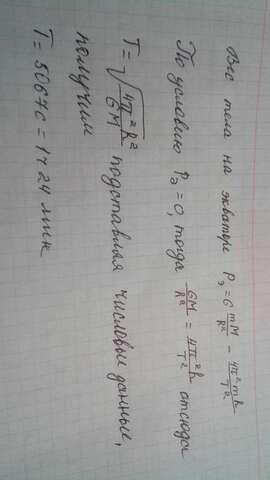 Вес тела на экваторе P_э = G mM/R² − 4π²mR/T²
По условию P_э = 0, тогда GM/R² = 4π²R/T² отсюда
T = √(4π²R²/GM) подставляя числовые данные,
получим
T = 5067с = 1ч 24 мин